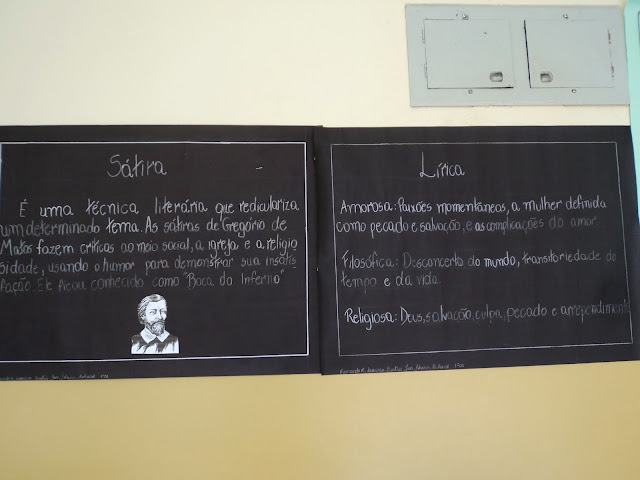 Sátira
É uma técnica literária que rediculariza
um determinado tema. As sátiras de Gregório de
Matos fazem críticas ao meio social, a igreja e a religio
sidade, usando o humor para demonstrar sua insatis
fação. Ele ficou conhecido como "Boca do Inferno"
Lírica
Amorosa: Paixões momentâneas, a mulher definida
como pecado e salvação, e as complicações do amor.
Filosófica: Desconcerto do mundo, transitoriedade do
tempo e da vida.
Religiosa: Deus, salvação, culpa, pecado e arrependimento